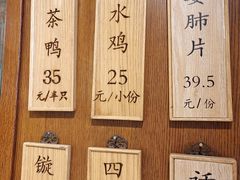 茶鸭
35
元/半只
水鸡
25
元/小份
肺片
39.5
元/份
镟
四